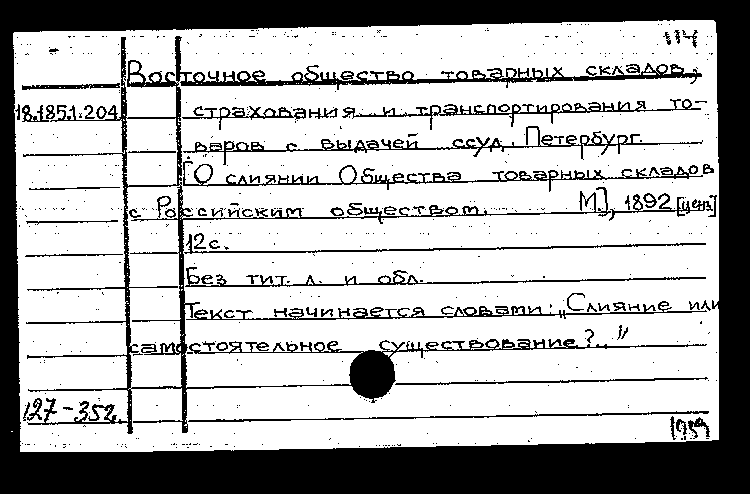 114
Восточное общество товарных складов,
18.185.1.204 страхования и транспортирования то-
варов с выдачей ссуд. Петербург.
[О слиянии Общества товарных складов
с Российским обществом. М], 1892 [ценз]
12 с.
Без тит. л. и обл.
Текст начинается словами: „Слияние или
самостоятельное существование?.."
127-352.